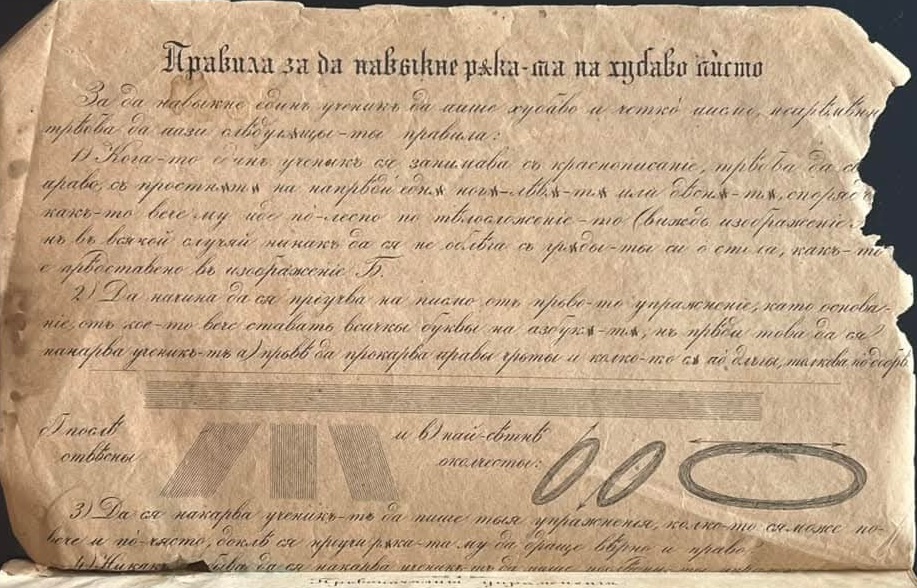 Правила за да навыкне рѫка-та на хубаво писмо
За да навыкне единъ ученикъ да пише хубаво и четко писмо, непрѣмѣнн
трѣбва да пази слѣдующы-ты правила:
1) Кога-то единъ ученыкъ ся занимава съ краснописаніе, трѣбва да с
право, съ простнѫтѫ на напрѣдъ еднѫ ногѫ-лѣвѫ-тѫ или дѣснѫ-тѫ, споредъ
какъ-то вече му иде по-лесно по тѣлосложеніе-то (виждь изображеніе А
нъ въ всякой случяй никакъ да ся не облѣга съ грѫды-ты си о стола, какъ-то
е прѣдставено въ изображеніе Б.
2) Да начина да ся проучва на писмо отъ пръво-то упражненіе, като основа-
ніе, отъ кое-то вече ставатъ всичкы буквы на азбукѫ-тѫ, нъ прѣди това да ся
накарва ученикъ-тъ а) првѣ да прокарва правы чръты и колко-то сѫ по дългы, толкова по добрѣ
б) послѣ и в) най-сѣтнѣ
отвѣсны околчесты:
3) Да ся накарва ученикъ-тъ да пише тыя упражненыя, колко-то ся може по-
вече и по-чясто, доклѣ ся приучи рѫка-та му да дръще вѣрно и право.
4) Никакъ да ся накарва ученикъ-тъ да пише
Првоначялны упражнения